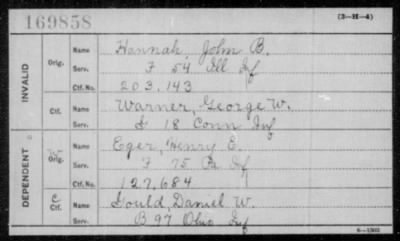 169858
(3-H-4)
INVALID
Orig.
Name Hannah, John B.
Serv. F 54 Ill Inf
Ctf. No. 203,143
Ctf.
Name Warner, George W.
Serv. I 18 Conn Inf
DEPENDENT
W
Orig.
Name Eger, Henry E.
Serv. F 75 Pa Inf
Ctf. No. 127,684
C
Ctf.
Name Gould, Daniel W.
Serv. B 97 Ohio Inf